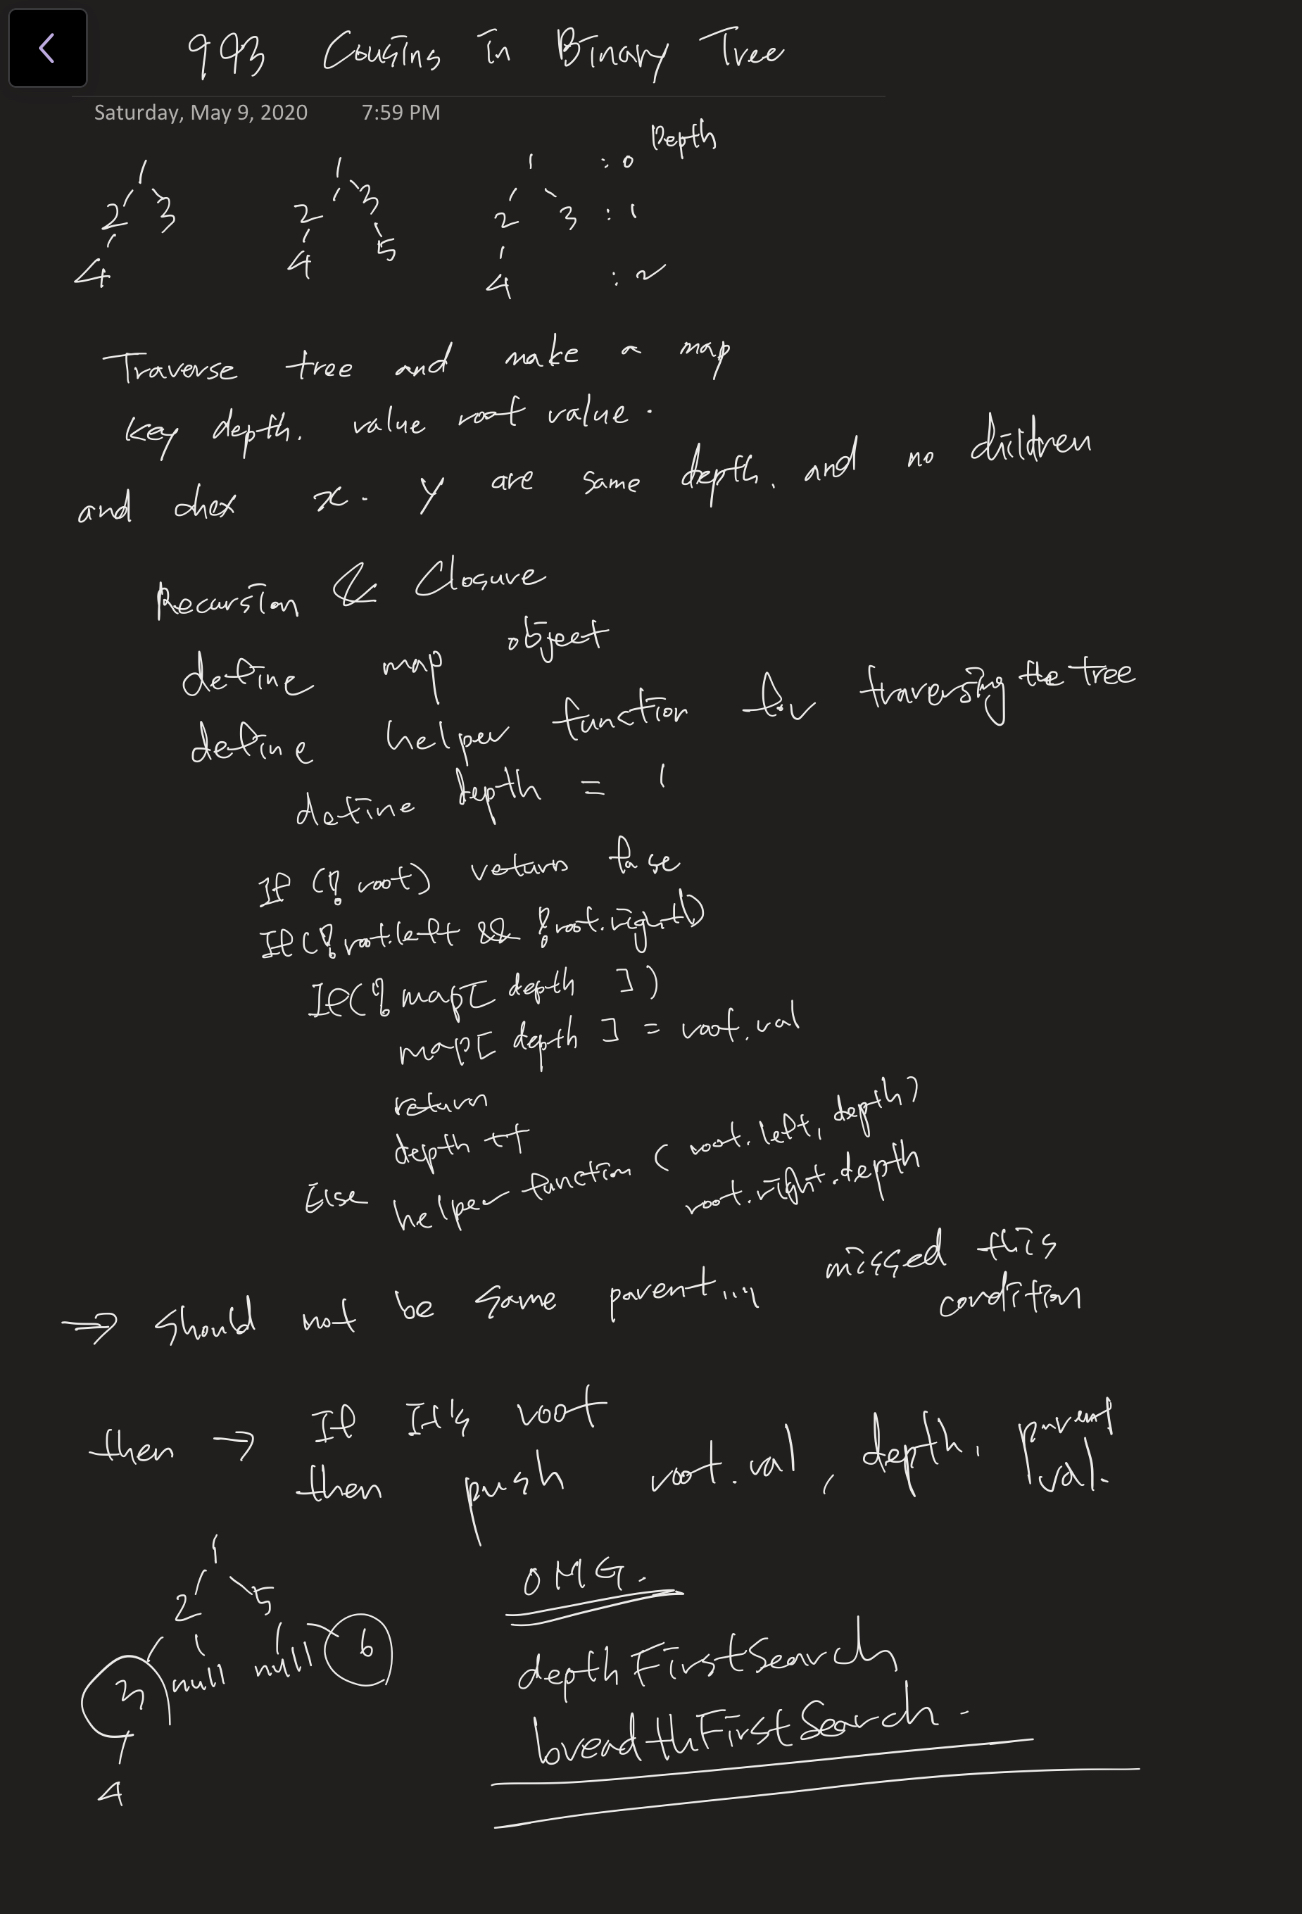 993 Cousins in Binary Tree
Saturday, May 9, 2020 7:59 PM
Depth
1 1 1 : 0
2 3 2 3 2 3 : 1
4 4 5 4 : 2
Traverse tree and make a map
key depth. value root value.
and chex x. y are same depth. and no children
Recursion & Closure
define map object
define helper function for traversing the tree
define depth = 1
If (! root) return false
If (! root.left && ! root.right)
If (! map[ depth ])
map[ depth ] = root.val
return
depth ++
Else helper function ( root.left, depth)
root.right.depth
⇒ should not be same parent.... missed this
condition
then → If It's root
then push root.val, depth, parent
val.
1
2 5
3 null null 6
4
OMG.
depthFirstSearch
breadthFirstSearch.